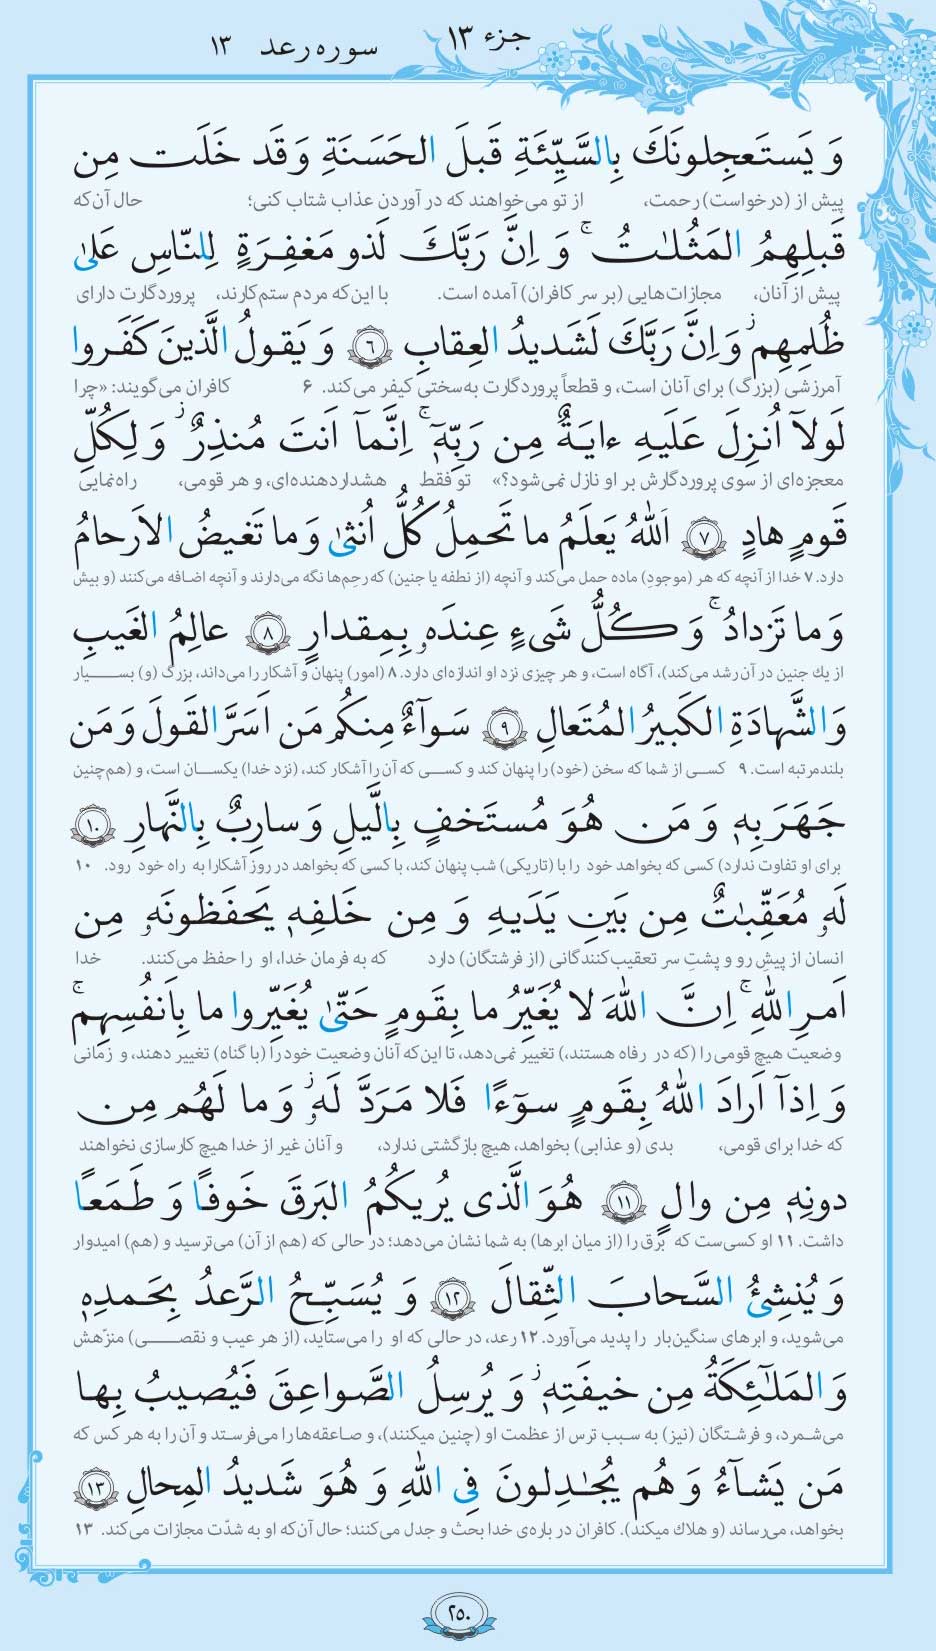 جزء ۱۳
سوره رعد ۱۳
وَ يَستَعجِلونَكَ بِالسَّيِّئَةِ قَبلَ الحَسَنَةِ وَ قَد خَلَت مِن
پیش از (درخواست) رحمت، از تو می‌خواهند که در آوردن عذاب شتاب کنی؛ حال آن‌که
قَبلِهِمُ المَثُلٰتُ ۚ وَ اِنَّ رَبَّكَ لَذو مَغفِرَةٍ لِلنّاسِ عَلىٰ
پیش از آنان، مجازات‌هایی (بر سر کافران) آمده است. با این‌که مردم ستم‌کارند، پروردگارت دارای
ظُلمِهِم ۖ وَ اِنَّ رَبَّكَ لَشَديدُ العِقابِ ﴿۶﴾ وَ يَقولُ الَّذينَ كَفَروا
آمرزشی (بزرگ) برای آنان است، و قطعاً پروردگارت به‌سختی کیفر می‌کند. ۶ کافران می‌گویند: «چرا
لَولآ اُنزِلَ عَلَيهِ ءايَةٌ مِن رَبِّهٖٓ ۗ اِنَّمآ اَنتَ مُنذِرٌ ۖ وَ لِكُلِّ
معجزه‌ای از سوی پروردگارش بر او نازل نمی‌شود؟» تو فقط هشداردهنده‌ای، و هر قومی، راه‌نمایی
قَومٍ هادٍ ﴿۷﴾ اَللهُ يَعلَمُ ما تَحمِلُ كُلُّ اُنثىٰ وَ ما تَغيضُ الاَرحامُ
دارد. ۷ خدا از آنچه که هر (موجودِ) ماده حمل می‌کند و آنچه (از نطفه یا جنین) که رحِم‌ها نگه می‌دارند و آنچه اضافه می‌کنند (و بیش
وَ ما تَزدادُ ۚ وَ كُلُّ شَیءٍ عِندَهٗ بِمِقدارٍ ﴿۸﴾ عالِمُ الغَيبِ
از یک جنین در آن رشد می‌کند)، آگاه است، و هر چیزی نزد او اندازه‌ای دارد. ۸ (امور) پنهان و آشکار را می‌داند، بزرگ (و) بسیار
وَ الشَّهادَةِ الكَبيرُ المُتَعالِ ﴿۹﴾ سَوآءٌ مِنكُم مَن اَسَرَّ القَولَ وَ مَن
بلندمرتبه است. ۹ کسی از شما که سخن (خود) را پنهان کند و کسی که آن را آشکار کند، (نزد خدا) یکسان است، و (هم‌چنین
جَهَرَ بِهٖ وَ مَن هُوَ مُستَخفٍ بِالَّيلِ وَ سارِبٌ بِالنَّهارِ ﴿۱۰﴾
برای او تفاوت ندارد) کسی که بخواهد خود را با (تاریکی) شب پنهان کند، با کسی که بخواهد در روز آشکارا به راه خود رود. ۱۰
لَهٗ مُعَقِّبٰتٌ مِن بَينِ يَدَيهِ وَ مِن خَلفِهٖ يَحفَظونَهٗ مِن
انسان از پیشِ رو و پشتِ سر تعقیب‌کنندگانی (از فرشتگان) دارد که به فرمان خدا، او را حفظ می‌کنند. خدا
اَمرِ اللهِ ۗ اِنَّ اللهَ لا يُغَيِّرُ ما بِقَومٍ حَتّىٰ يُغَيِّروا ما بِاَنفُسِهِم ۗ
وضعیت هیچ قومی را (که در رفاه هستند،) تغییر نمی‌دهد، تا این‌که آنان وضعیت خود را (با گناه) تغییر دهند، و زمانی
وَ اِذآ اَرادَ اللهُ بِقَومٍ سوٓءًا فَلا مَرَدَّ لَهٗ ۚ وَ ما لَهُم مِن
که خدا برای قومی، بدی (و عذابی) بخواهد، هیچ بازگشتی ندارد، و آنان غیر از خدا هیچ کارسازی نخواهند
دونِهٖ مِن والٍ ﴿۱۱﴾ هُوَ الَّذی يُريكُمُ البَرقَ خَوفًا وَ طَمَعًا
داشت. ۱۱ او کسی‌ست که برق را (از میان ابرها) به شما نشان می‌دهد؛ در حالی که (هم از آن) می‌ترسید و (هم) امیدوار
وَ يُنشِئُ السَّحابَ الثِّقالَ ﴿۱۲﴾ وَ يُسَبِّحُ الرَّعدُ بِحَمدِهٖ
می‌شوید، و ابرهای سنگین‌بار را پدید می‌آورد. ۱۲ رعد، در حالی که او را می‌ستاید، (از هر عیب و نقصی) منزّهش
وَ المَلٰٓئِكَةُ مِن خيفَتِهٖ ۚ وَ يُرسِلُ الصَّواعِقَ فَيُصيبُ بِها
می‌شمرد، و فرشتگان (نیز) به سبب ترس از عظمت او (چنین میکنند)، و صاعقه‌ها را می‌فرستد و آن را به هر کس که
مَن يَشآءُ وَ هُم يُجٰدِلونَ فِی اللهِ وَ هُوَ شَديدُ المِحالِ ﴿۱۳﴾
بخواهد، می‌رساند (و هلاك میکند). کافران در باره‌ی خدا بحث و جدل می‌کنند؛ حال آن‌که او به شدّت مجازات می‌کند. ۱۳
۲۵۰